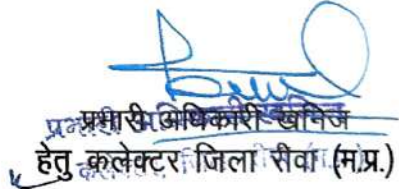 प्रभारी अधिकारी खनिज
हेतु कलेक्टर जिला रीवा (म.प्र.)